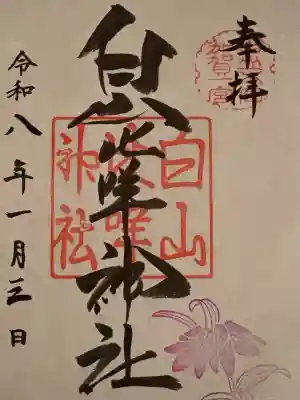 奉拝
白山比咩神社
白山
比咩
神社
令和八年一月三日